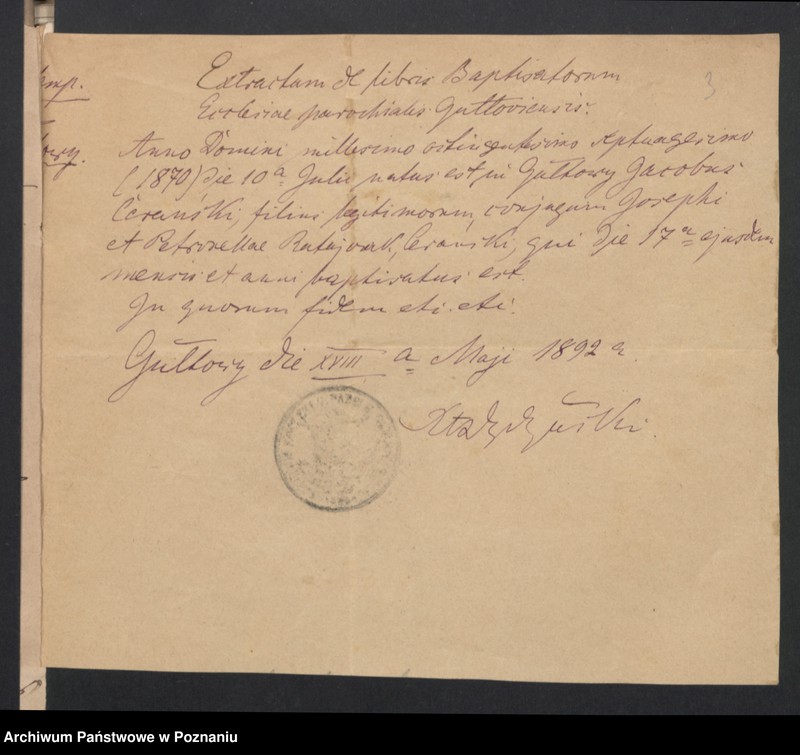 3
Extractum de libris Baptisatorum
Ecclesiae parochialis Gułtoviensis.
Anno Domini millesimo octingentesimo septuagesimo
(1870) die 10a Julii natus est in Gułtowy Jacobus
Cerański, filius legitimorum conjugum Josephi
et Petronellae Ratajczak, Cerański, qui die 17a ejusdem
mensis et anni baptisatus est.
In quorum fidem etc. etc.
Gułtowy die XVIII a Maji 1892 a.
Archiwum Państwowe w Poznaniu